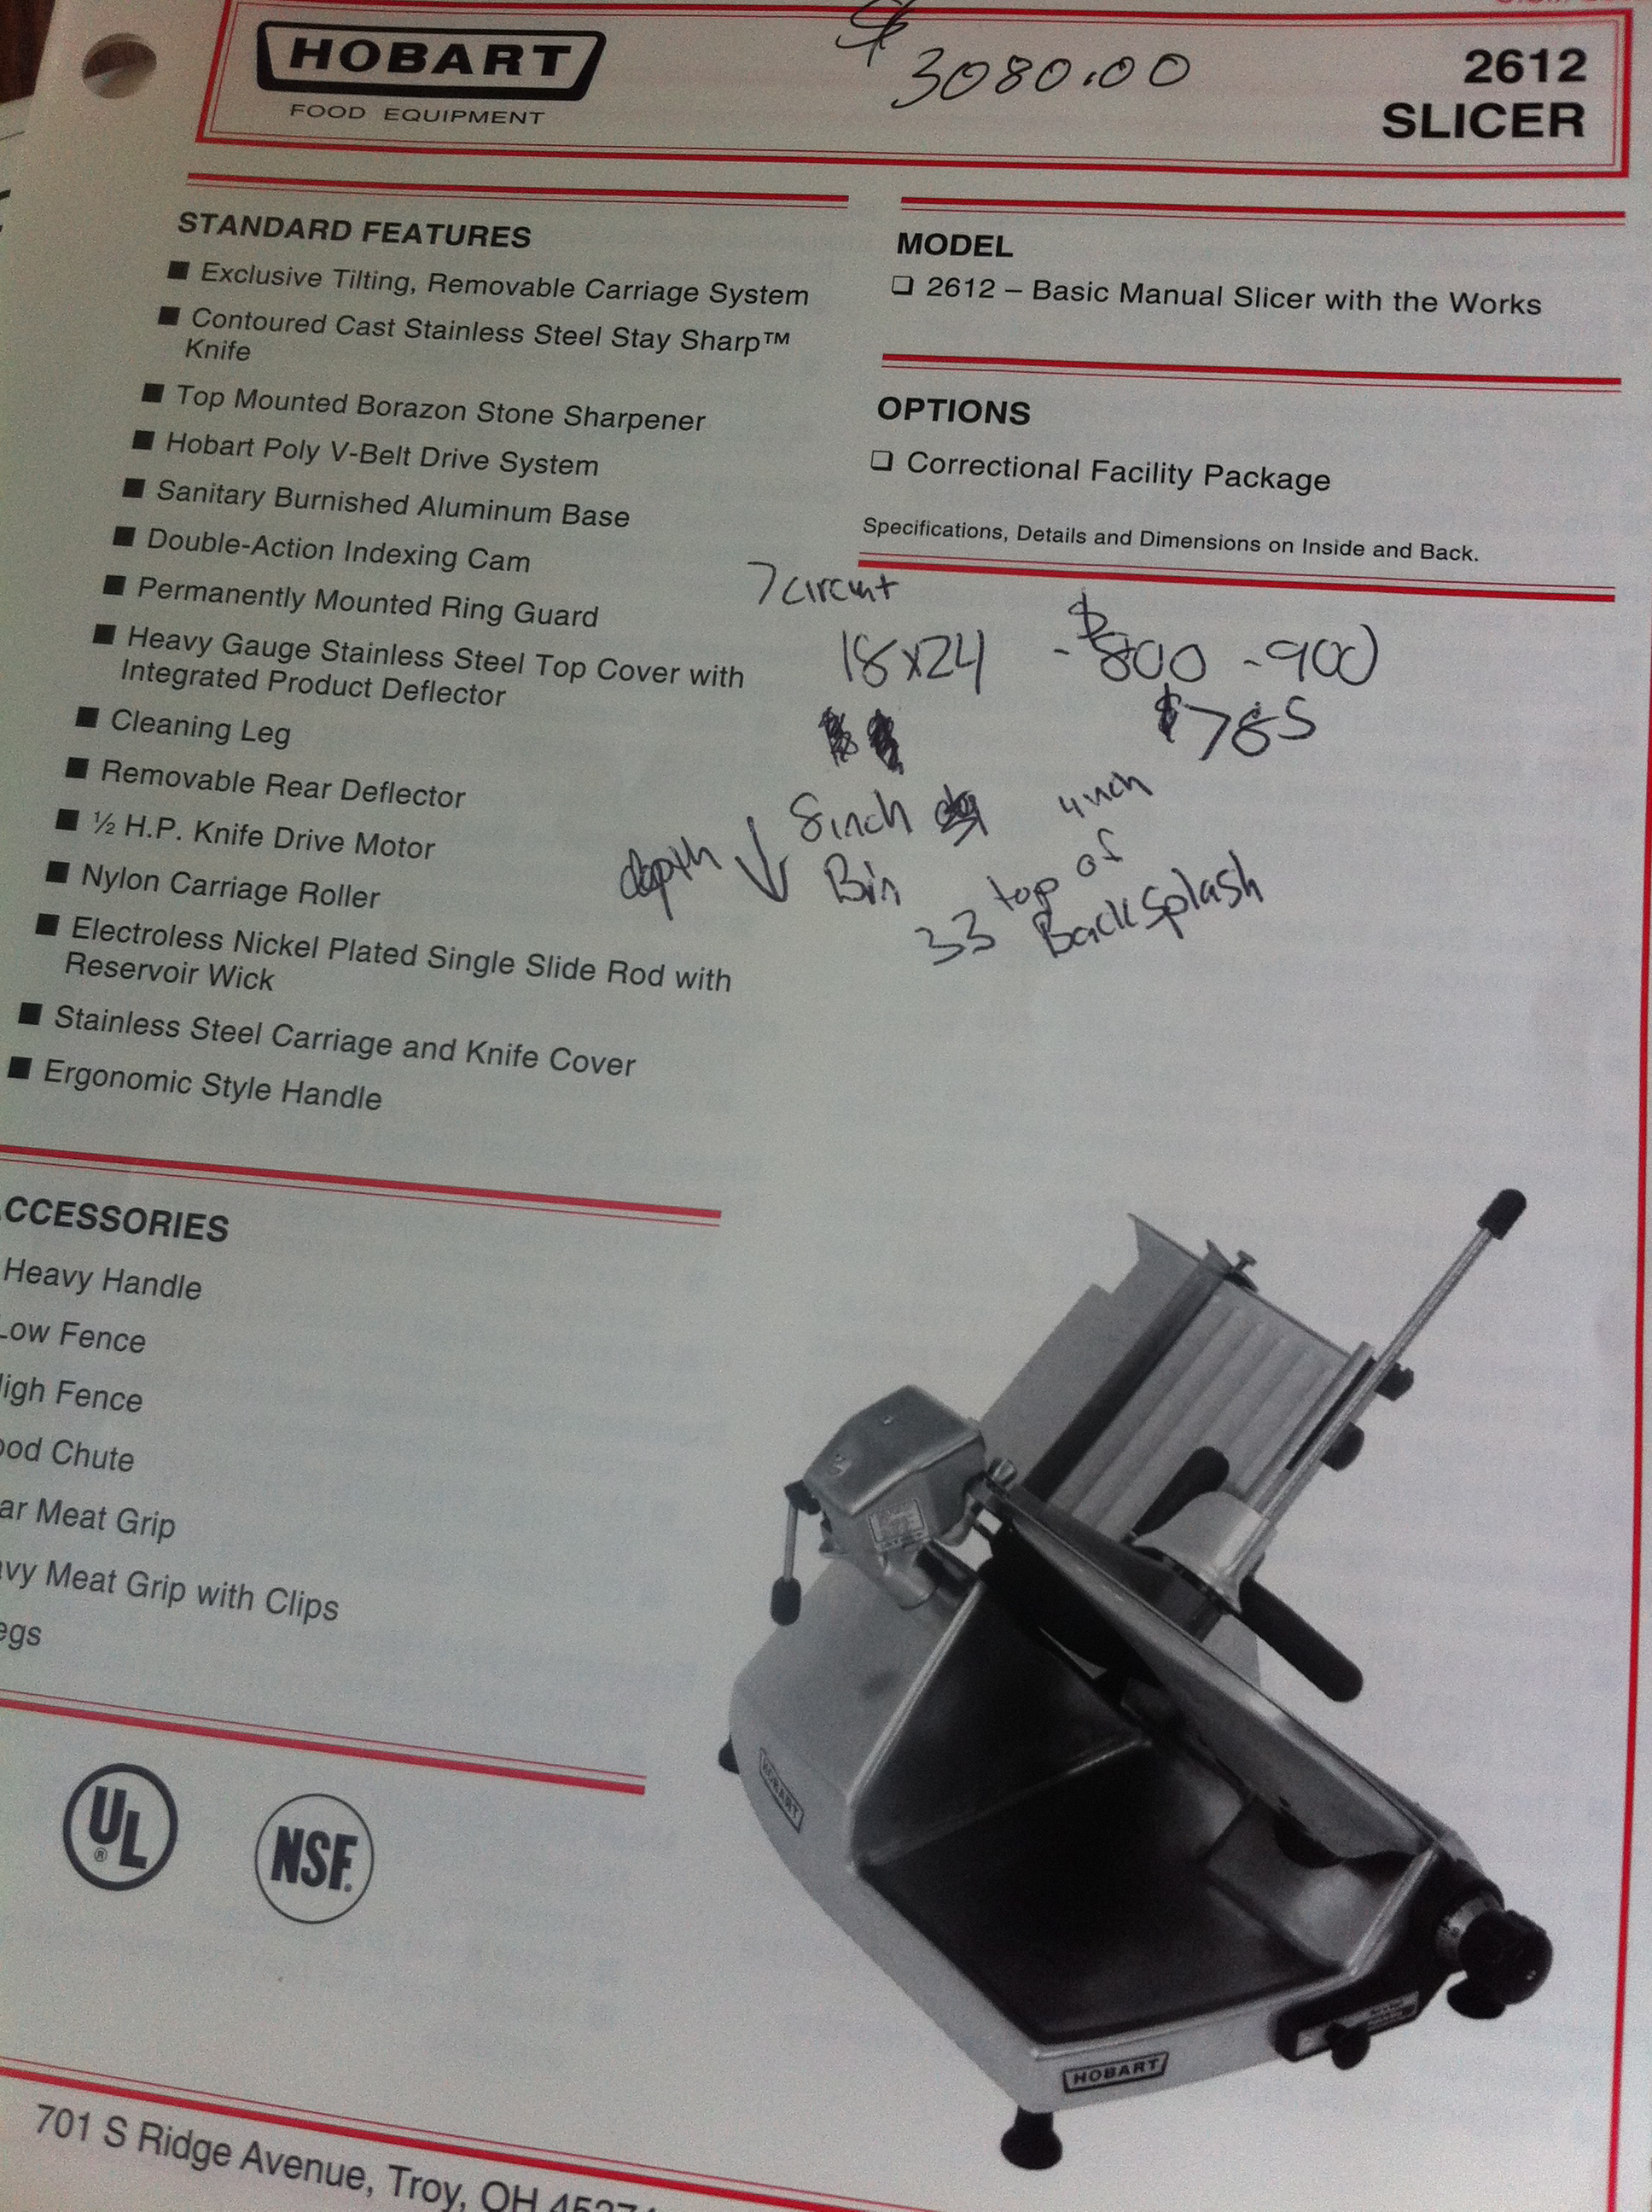 HOBART
FOOD EQUIPMENT
$ 3080.00
2612
SLICER
STANDARD FEATURES
■ Exclusive Tilting, Removable Carriage System
■ Contoured Cast Stainless Steel Stay Sharp™
Knife
■ Top Mounted Borazon Stone Sharpener
■ Hobart Poly V-Belt Drive System
■ Sanitary Burnished Aluminum Base
■ Double-Action Indexing Cam
■ Permanently Mounted Ring Guard
■ Heavy Gauge Stainless Steel Top Cover with
Integrated Product Deflector
■ Cleaning Leg
■ Removable Rear Deflector
■ ½ H.P. Knife Drive Motor
■ Nylon Carriage Roller
■ Electroless Nickel Plated Single Slide Rod with
Reservoir Wick
■ Stainless Steel Carriage and Knife Cover
■ Ergonomic Style Handle
MODEL
❏ 2612 – Basic Manual Slicer with the Works
OPTIONS
❏ Correctional Facility Package
Specifications, Details and Dimensions on Inside and Back.
18x24 - $800 - 900
$785
depth 8inch 4inch
Bin top of
33 Backsplash
CCESSORIES
Heavy Handle
Low Fence
igh Fence
ood Chute
ar Meat Grip
avy Meat Grip with Clips
egs
UL
NSF
HOBART
HOBART
701 S Ridge Avenue, Troy, OH